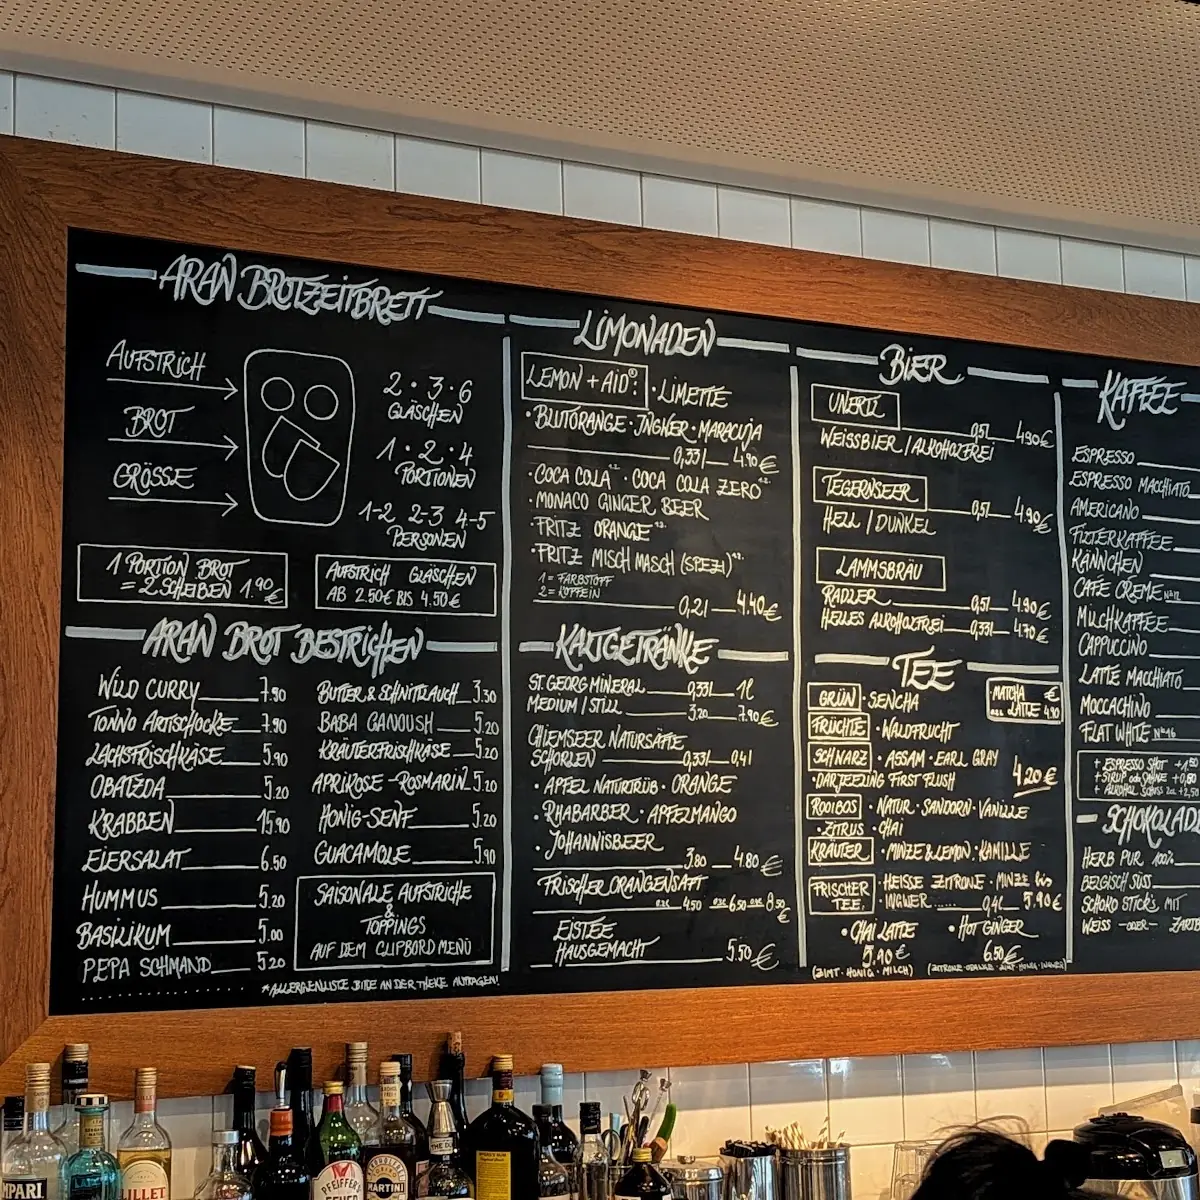 ARAN BROTZEITBRETT
AUFSTRICH
BROT
GRÖSSE
2 · 3 · 6
GLÄSCHEN
1 · 2 · 4
PORTIONEN
1-2 2-3 4-5
PERSONEN
1 PORTION BROT
= 2 SCHEIBEN 1.90 €
AUFSTRICH GLÄSCHEN
AB 2.50€ BIS 4.50€
ARAN BROT BESTRICHEN
WILD CURRY 7.50
TONNO ARTISCHOCKE 7.90
LACHSFRISCHKÄSE 5.90
OBATZDA 5.20
KRABBEN 15.90
EIERSALAT 6.50
HUMMUS 5.20
BASILIKUM 5.00
PEPA SCHMAND 5.20
BUTTER & SCHNITTLAUCH 3.30
BABA GANOUSH 5.20
KRÄUTERFRISCHKÄSE 5.20
APRIKOSE-ROSMARIN 5.20
HONIG-SENF 5.20
GUACAMOLE 5.90
SAISONALE AUFSTRICHE
&
TOPPINGS
AUF DEM CLIPBORD MENÜ
*ALLERGENLISTE BITTE AN DER THEKE ANFRAGEN!
LIMONADEN
LEMON + AID®: · LIMETTE
· BLUTORANGE · INGWER · MARACUJA
0,33l 4.90 €
· COCA COLA · COCA COLA ZERO
· MONACO GINGER BEER
· FRITZ ORANGE
· FRITZ MISCH MASCH (SPEZI)
1 = FARBSTOFF
2 = KOFFEIN
0,2l 4.40 €
KALTGETRÄNKE
ST. GEORG MINERAL 0,33l 1l
MEDIUM / STILL 3.20 7.90 €
CHIEMSEER NATURSÄFTE
SCHORLEN 0,33l 0,4l
· APFEL NATURTRÜB · ORANGE
· RHABARBER · APFELMANGO
· JOHANNISBEER
3.80 4.80 €
FRISCHER ORANGENSAFT
4.50 6.50 8.50 €
EISTEE
HAUSGEMACHT 5.50 €
BIER
UNERTL
0,5l 4.90 €
WEISSBIER / ALKOHOLFREI
TEGERNSEER
0,5l 4.90 €
HELL / DUNKEL
LAMMSBRÄU
RADLER 0,5l 4.90 €
HELLES ALKOHOLFREI 0,33l 4.70 €
TEE
GRÜN · SENCHA
MATCHA €
LATTE 4.90
FRÜCHTE · WALDFRUCHT
SCHWARZ · ASSAM · EARL GRAY
· DARJEELING FIRST FLUSH
4.20 €
ROOIBOS · NATUR · SANDORN · VANILLE
· ZITRUS · CHAI
KRÄUTER · MINZE & LEMON · KAMILLE
FRISCHER TEE: · HEISSE ZITRONE · MINZE bis
· INGWER ...... 0,4l 5.90 €
· CHAI LATTE
5.90 €
(ZIMT · HONIG · MILCH)
· HOT GINGER
6.50 €
KAFFEE
ESPRESSO
ESPRESSO MACCHIATO
AMERICANO
FILTERKAFFEE
KÄNNCHEN
CAFE CREME
MILCHKAFFEE
CAPPUCCINO
LATTE MACCHIATO
MOCCACHINO
FLAT WHITE
+ ESPRESSO SHOT +1.50
+ SIRUP oder SAHNE +0,80
+ ALKOHOL SCHUSS 2cl +2,50
SCHOKOLAD
HERB PUR 100%
BELGISCH SÜSS
SCHOKO STICKS MIT
WEISS - ODER - ZARTB
MPARI
LILLET
PFEIFFER'S
MARTINI
THE DU